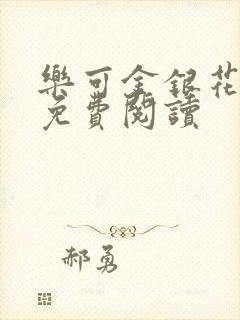 樂可金銀花
免費閱讀
郝勇